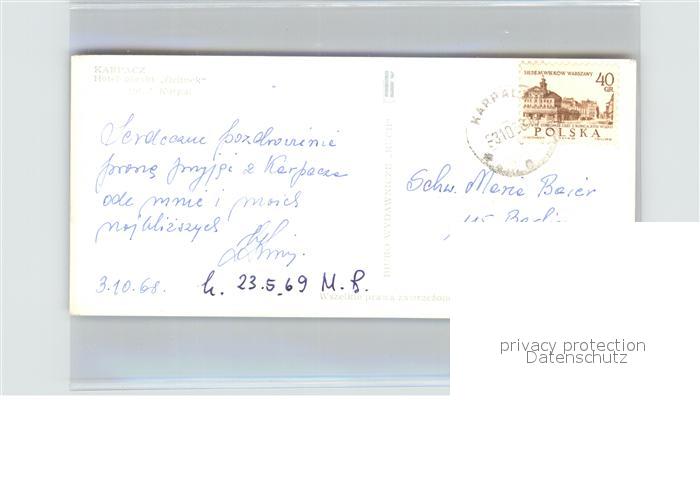 KARPACZ
Hotel
fot. J. Korpal
Serdeczne pozdrowienia
proszę przyjąć z Karpacza
ode mnie i moich
najbliższych
3.10.68.
23.5.69 M.B.
BIURO WYDAWNICZE „RUCH"
Wszelkie prawa zastrzeżone
KARPACZ
SIEDEM WIEKÓW WARSZAWY
40
GR
POLSKA
Schw. Maria Baier
115 Berlin
privacy protection
Datenschutz